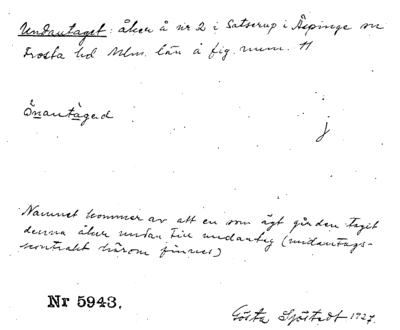 Undantaget: åker å nr 2 i Satserup i Äspinge sn
Frosta hd Mlm. län å fig. num. 11
Önantäged
j
Namnet kommer av att en som ägt gården tagit
denna åker undan till undantag (undantags-
kontrakt härom finnes)
Nr 5943.
Gösta Sjöstedt 1927.